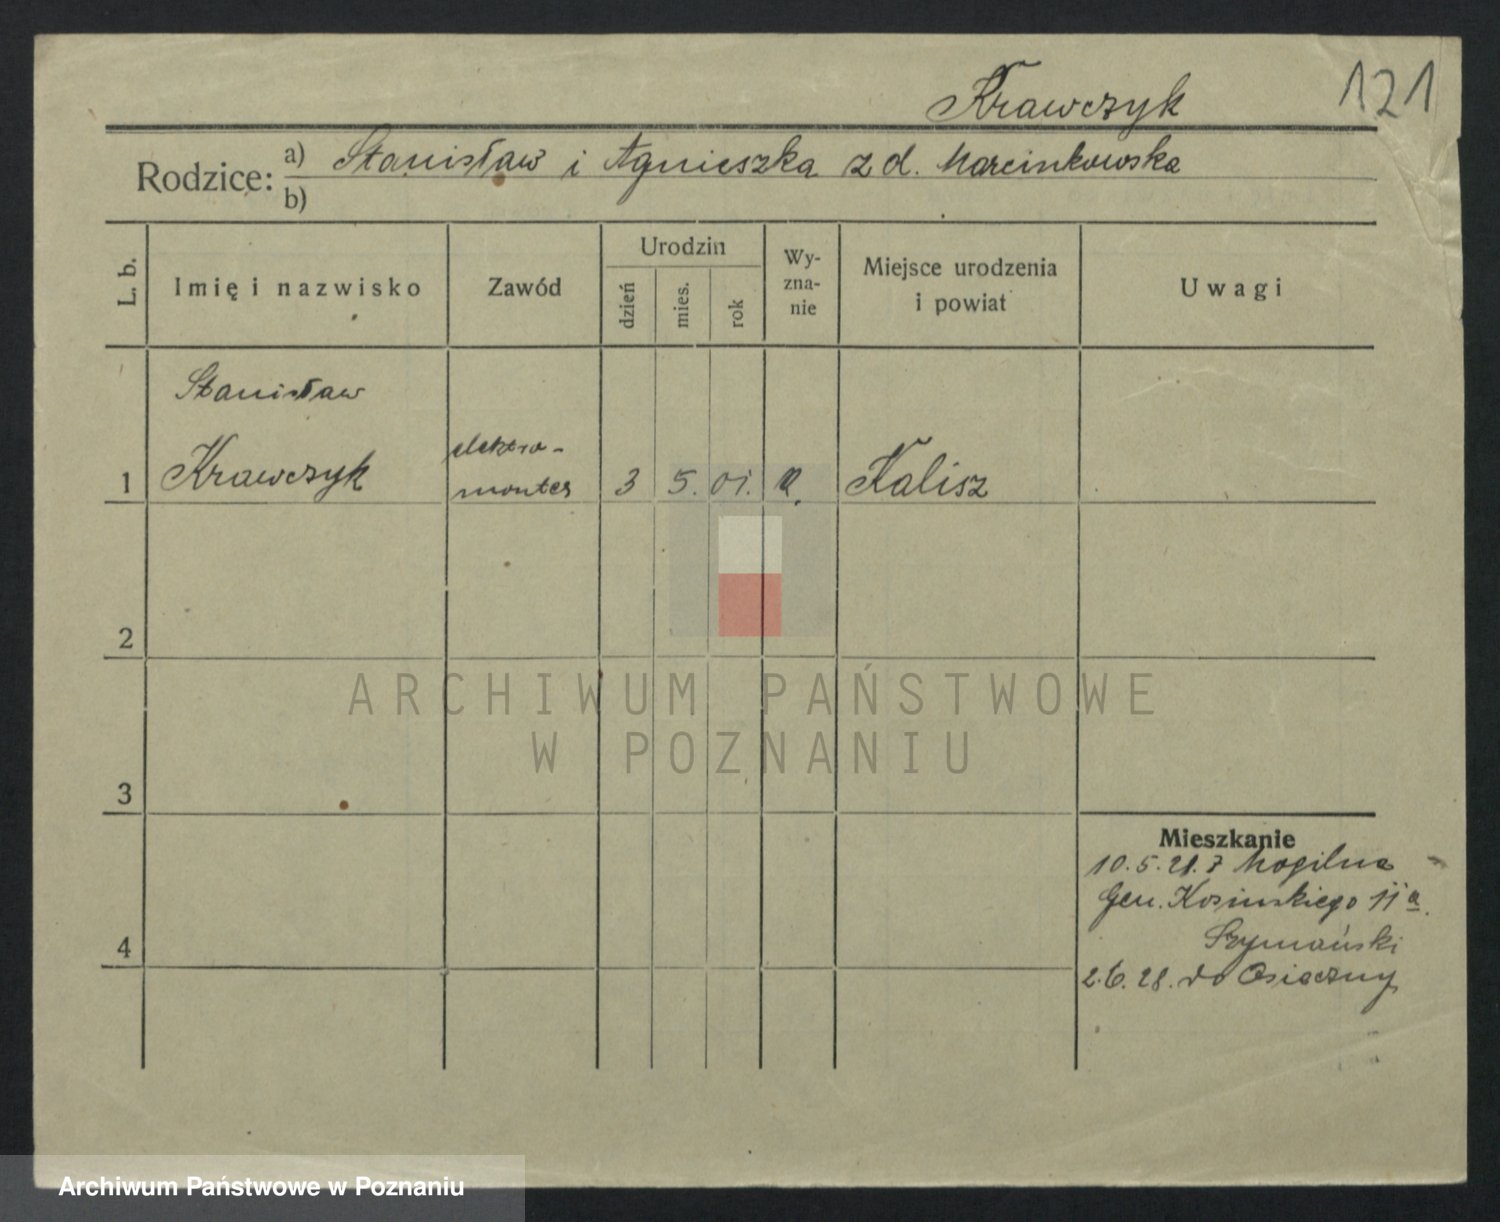 Krawczyk
121
Rodzice: a) Stanisław i Agnieszka z d. Marcinkowska
b)
L. b.
Imię i nazwisko
Zawód
Urodzin
dzień
mies.
rok
Wy-
zna-
nie
Miejsce urodzenia
i powiat
Uwagi
Stanisław
1 Krawczyk
elektro-
monter
3 5. 01. Kalisz
2
3
4
Mieszkanie
10.5.21. z Mogilna
Gen. Kosinskiego 11 a.
Szymański
2.6.28. do Osieczny
ARCHIWUM PAŃSTWOWE
W POZNANIU
Archiwum Państwowe w Poznaniu